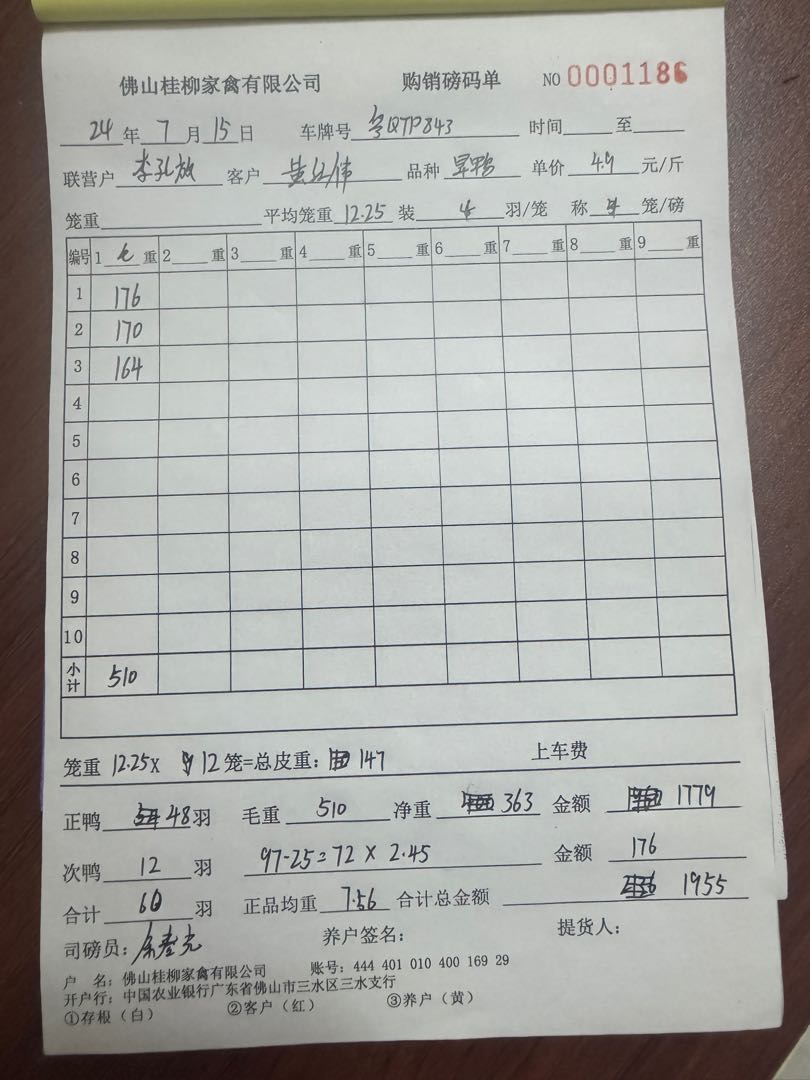 佛山桂柳家禽有限公司 购销磅码单 NO 0001186
24年7月15日 车牌号 粤QTP843 时间 至
联营户 李孔放 客户 黄红伟 品种 旱鸭 单价 4.9 元/斤
笼重 平均笼重 12.25 装 4 羽/笼 称 4 笼/磅
编号 1 毛 重 2 重 3 重 4 重 5 重 6 重 7 重 8 重 9 重
1 176
2 170
3 164
4
5
6
7
8
9
10
小计 510
笼重 12.25 X 12笼=总皮重: 147 上车费
正鸭 48羽 毛重 510 净重 363 金额 1779
次鸭 12 羽 97-25=72 X 2.45 金额 176
合计 60 羽 正品均重 7.56 合计总金额 1955
司磅员: 养户签名: 提货人:
户 名: 佛山桂柳家禽有限公司 账号: 444 401 010 400 169 29
开户行: 中国农业银行广东省佛山市三水区三水支行
①存根（白） ②客户（红） ③养户（黄）